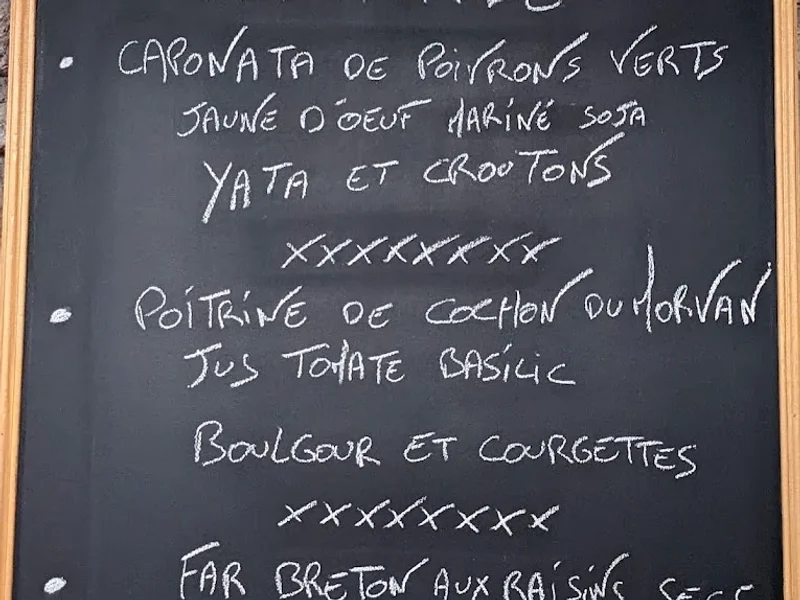 • CAPONATA DE POIVRONS VERTS
JAUNE D'OEUF MARINÉ SOJA
YATA ET CROUTONS
XXXXXXXX
• POITRINE DE COCHON DU MORVAN
JUS TOMATE BASILIC
BOULGOUR ET COURGETTES
XXXXXXXX
• FAR BRETON AUX RAISINS SECS